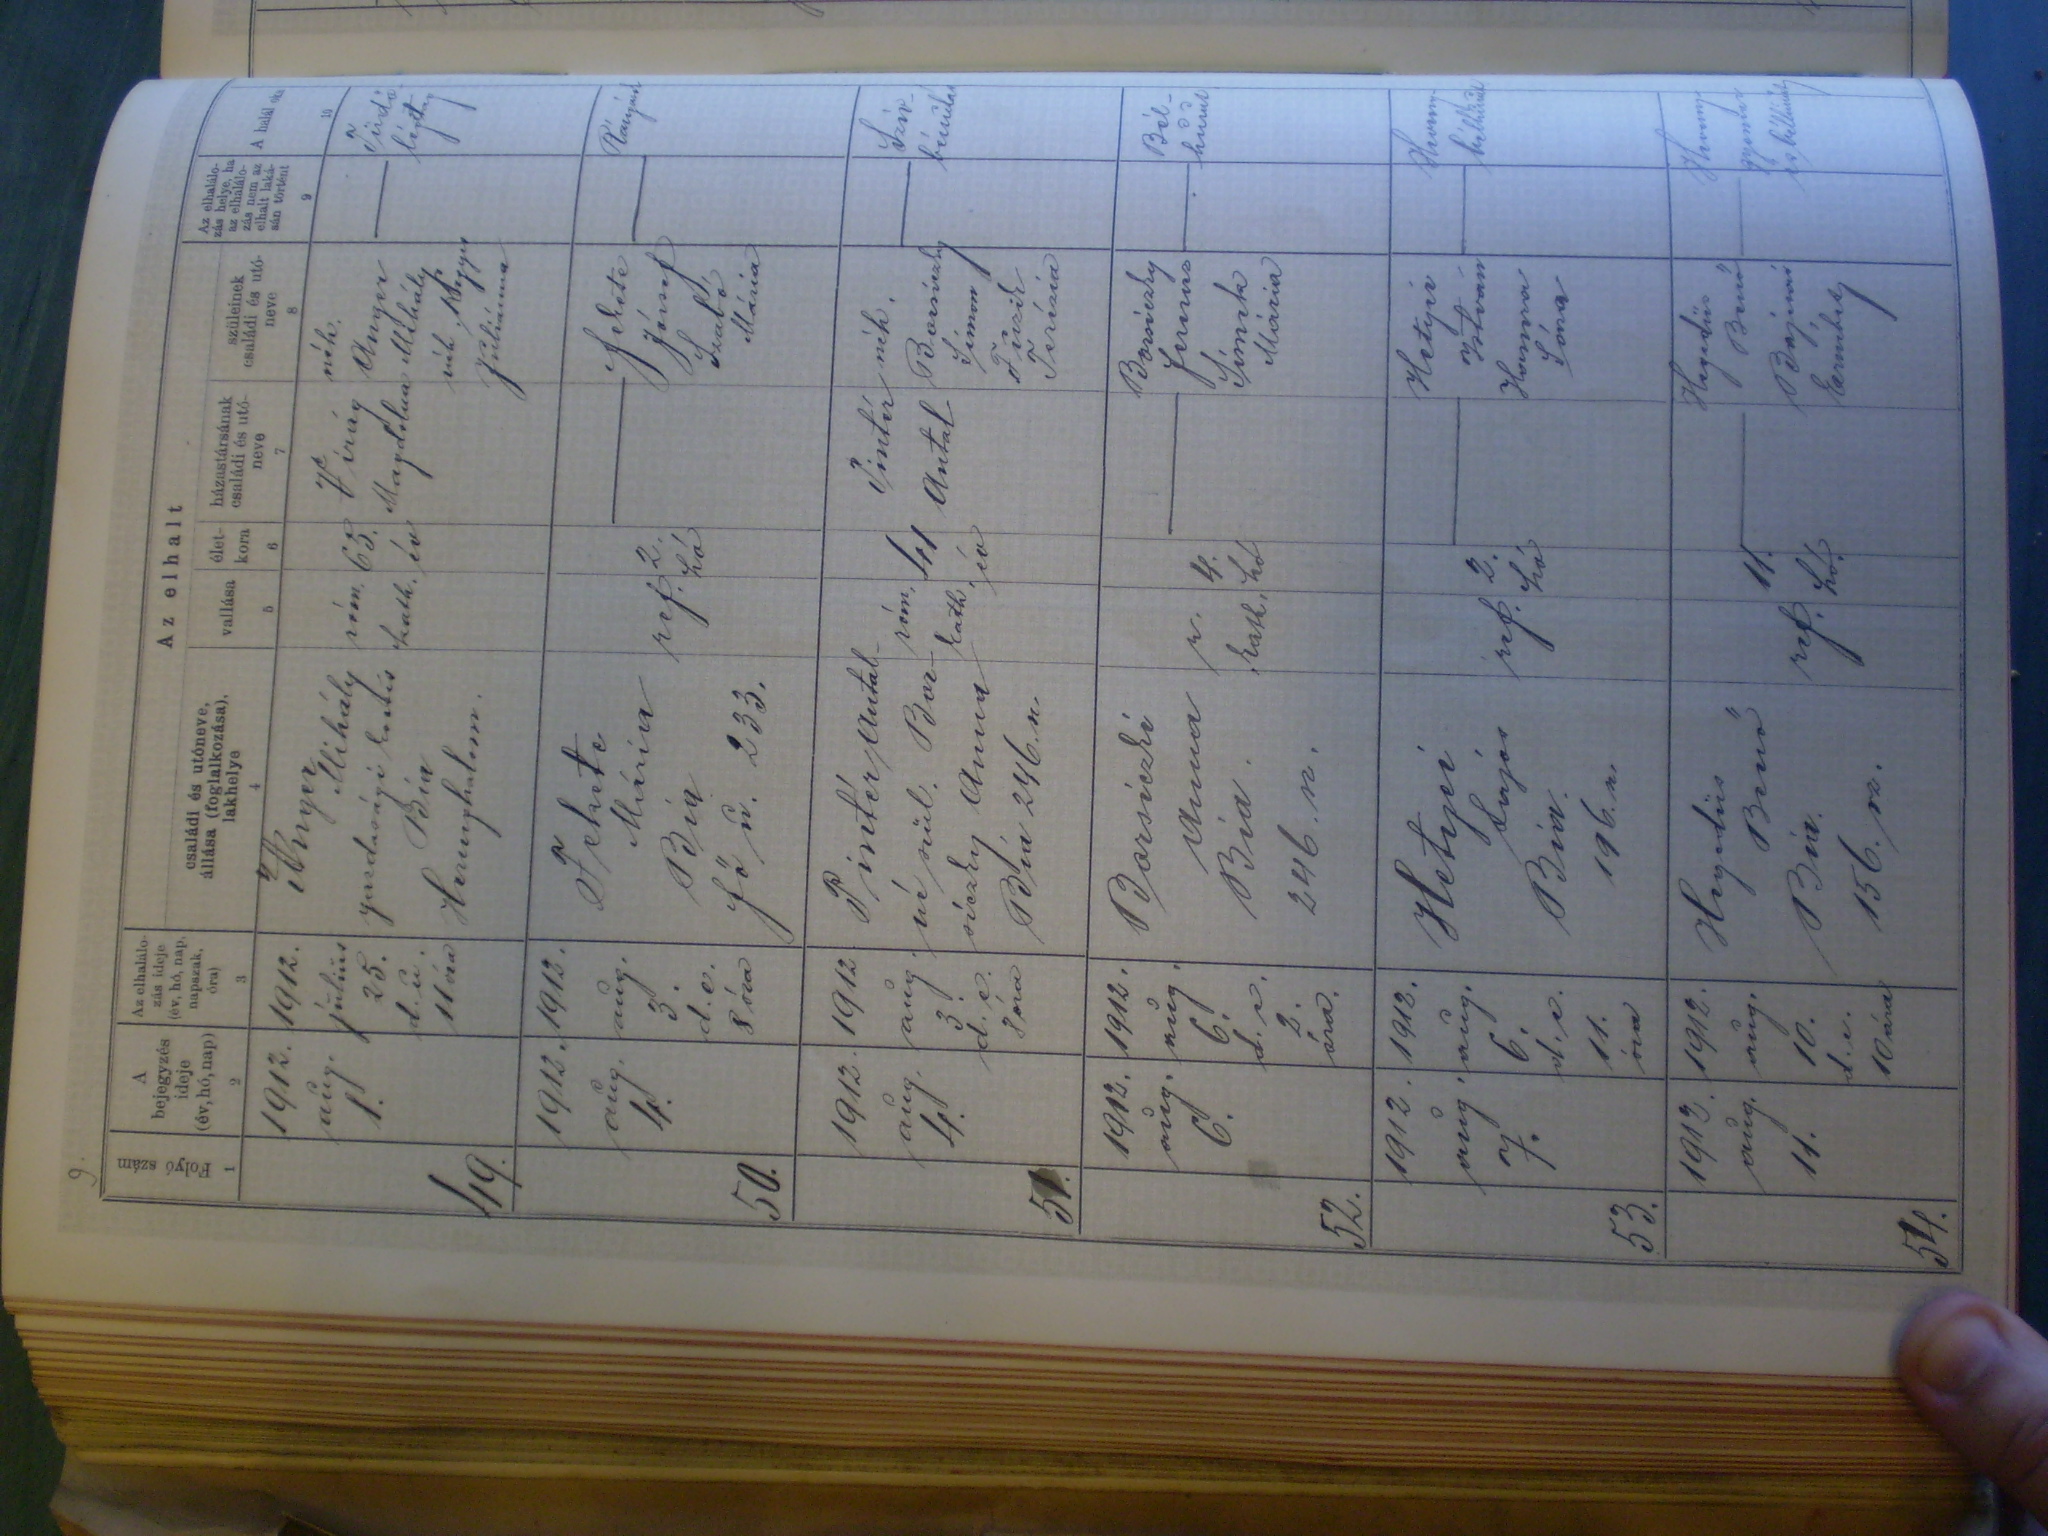 9.
Az elhalt
Folyó szám
A bejegyzés ideje (év, hó, nap)
Az elhalálozás ideje (év, hó, nap, napszak, óra)
családi és utóneve, állása (foglalkozása), lakhelye
vallása
életkora
házastársának családi és utóneve
szüleinek családi és utóneve
Az elhalálozás helye, ha az elhalálozás nem az elhalt lakásán történt
A halál oka
1 2 3 4 5 6 7 8 9 10
49.
1912.
aug.
1.
1912.
július
25.
d. u.
11 óra
Unger
Mihály
gazdasági
Bia
Herceghalom.
róm.
kath.
63.
év
Virág
Magdolna
néh.
Unger
Mihály
néh. Nagy
Juliánna
Tüdő
50.
1912.
aug.
4.
1912.
aug.
3.
d. e.
8 óra
Fekete
Mária
Bia
Fő u. 233.
ref.
2.
hó
Fekete
József
Szabó
Mária
51.
1912.
aug.
4.
1912
aug.
3.
d. e.
Pintér Antal-
né szül. Bor-
siczky Anna
Bia 246. n.
róm.
kath.
41
év
Pintér
Antal
néh.
Borsiczky
Simon
Terézia
Szív-
bénulás
52.
1912.
aug.
6.
1912.
aug.
6.
d. e.
2.
óra.
Borsiczki
Anna
Bia.
246. n.
r.
kath.
4.
hó
Borsiczky
Ferenc
Simek
Mária
Bél-
hurut
53.
1912.
aug.
7.
1912.
aug.
6.
d. e.
11.
óra
Hetyei
Lajos
Bia.
196. n.
ref.
2.
hó
Hetyei
István
54.
1912.
aug.
11.
1912.
aug.
10.
d. e.
10 óra
Hegedüs
Benő
Bia.
156. n.
ref.
11.
hó.
Hegedüs
Benő